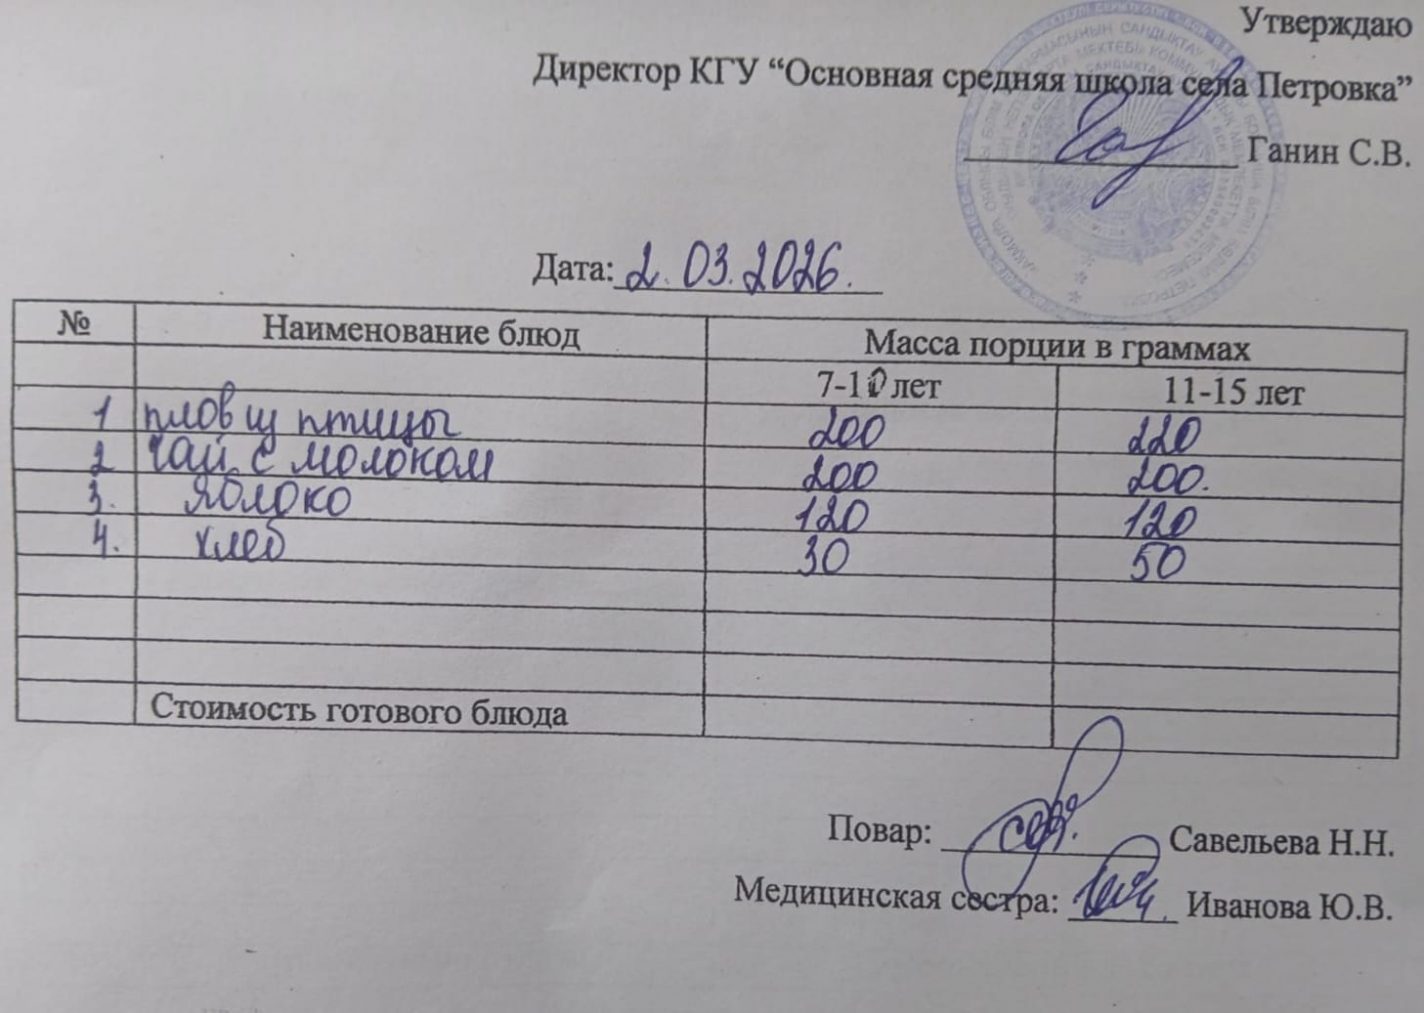 Утверждаю
Директор КГУ “Основная средняя школа села Петровка”
Ганин С.В.
Дата: 2.03.2026.
№ Наименование блюд Масса порции в граммах
7-10 лет 11-15 лет
1 плов из птицы 200 220
2 чай с молоком 200 200.
3. яблоко 120 120
4. хлеб 30 50
Стоимость готового блюда
Повар: Савельева Н.Н.
Медицинская сестра: Иванова Ю.В.